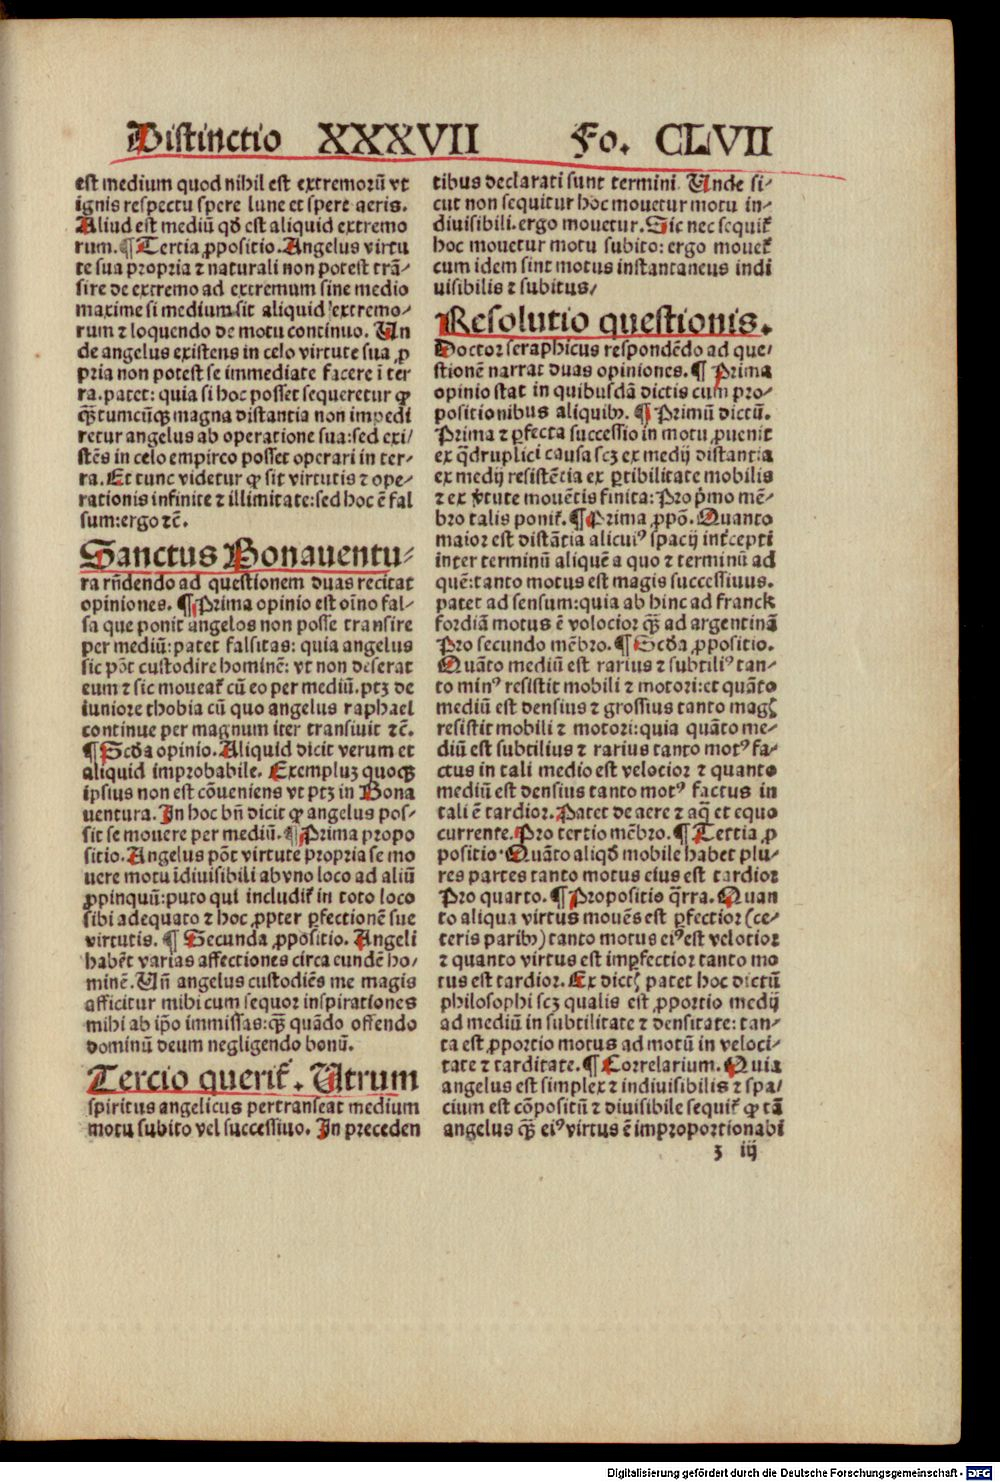 Distinctio XXXVII Fo. CLVII
est medium quod nihil est extremorū vt
ignis respectu spere lune et spere aeris.
Aliud est mediū qd est aliquid extremo
rum. ¶ Tertia ꝓpositio. Angelus virtu
te sua propria ⁊ naturali non potest trā⸗
sire de extremo ad extremum sine medio
maxime si medium sit aliquid extremo⸗
rum ⁊ loquendo de motu continuo. Un
de angelus existens in celo virtute sua ꝓ
pria non potest se immediate facere ī ter
ra. patet: quia si hoc posset sequeretur ꝙ
q̄ꝫtumcūqꝫ magna distantia non impedi
retur angelus ab operatione sua: sed exi⸗
stēs in celo empireo posset operari in ter⸗
ra. Et tunc videtur ꝙ sit virtutis ⁊ ope⸗
rationis infinite ⁊ illimitate: sed hoc ē fal
sum: ergo ⁊c̄.
Sanctus Bonauentu⸗
ra rn̄dendo ad questionem duas recitat
opiniones. ¶ Prima opinio est oīno fal⸗
sa que ponit angelos non posse transire
per mediū: patet falsitas: quia angelus
sic pōt custodire hominē: vt non deserat
eum ⁊ sic moueat᷑ cū eo per mediū. ptꝫ de
iuniore thobia cū quo angelus raphael
continue per magnum iter transiuit ⁊c̄.
¶ Scd̄a opinio. Aliquid dicit verum et
aliquid improbabile. Exempluꝫ quoqꝫ
ipsius non est cōueniens vt ptꝫ in Bona
uentura. In hoc bn̄ dicit ꝙ angelus pos⸗
sit se mouere per mediū. ¶ Prima propo
sitio. Angelus pōt virtute propria se mo
uere motu īdiuisibili ab vno loco ad aliū
ꝓpinquū: puto qui includit᷑ in toto loco
sibi adequato ⁊ hoc ꝓpter ꝑfectionē sue
virtutis. ¶ Secunda ꝓpositio. Angeli
habēt varias affectiones circa eundē ho⸗
minē. Un̄ angelus custodiēs me magis
afficitur mihi cum sequor inspirationes
mihi ab ip̄o immissas: q̄ꝫ quādo offendo
dominū deum negligendo bonū.
Tercio querit᷑. Utrum
spiritus angelicus pertranseat medium
motu subito vel successiuo. In preceden
tibus declarati sunt termini. Unde si⸗
cut non sequitur hoc mouetur motu in⸗
diuisibili. ergo mouetur. Sic nec sequit᷑
hoc mouetur motu subito: ergo mouet᷑
cum idem sint motus instantaneus indi
uisibilis ⁊ subitus/
Resolutio questionis.
Doctor seraphicus respondēdo ad que⸗
stionē narrat duas opiniones. ¶ Prima
opinio stat in quibusdā dictis cum pro⸗
positionibus aliquibꝫ. ¶ Primū dictū.
Prima ⁊ ꝑfecta successio in motu ꝓuenit
ex q̄druplici causa scꝫ ex medij distantia
ex medij resistētia ex ꝑtibilitate mobilis
⁊ ex v̓tute mouētis finita: Pro p̓mo mē⸗
bro talis ponit᷑. ¶ Prima ꝓpō. Quanto
maior est distātia alicuiꝰ spacij int̓cepti
inter terminū aliquē a quo ⁊ terminū ad
quē: tanto motus est magis successiuus.
patet ad sensum: quia ab hinc ad franck
fordiā motus ē velocior q̄ꝫ ad argentinā
Pro secundo mēbro. ¶ Scd̄a ꝓpositio.
Quāto mediū est rarius ⁊ subtiliꝰ tan⸗
to minꝰ resistit mobili ⁊ motori: et quāto
mediū est densius ⁊ grossius tanto magꝭ
resistit mobili ⁊ motori: quia quāto me⸗
diū est subtilius ⁊ rarius tanto motꝰ fa⸗
ctus in tali medio est velocior ⁊ quanto
mediū est densius tanto motꝰ factus in
tali ē tardior. Patet de aere ⁊ aq̄ et equo
currente. Pro tertio mēbro. ¶ Tertia ꝓ
positio. Quāto aliqd̄ mobile habet plu⸗
res partes tanto motus eius est tardior
Pro quarto. ¶ Propositio q̄rta. Quan
to aliqua virtus mouēs est ꝑfectior (ce⸗
teris paribꝫ) tanto motus eiꝰ est velocior
⁊ quanto virtus est imꝑfectior tanto mo
tus est tardior. Ex dictꝭ patet hoc dictū
philosophi scꝫ qualis est ꝓportio medij
ad mediū in subtilitate ⁊ densitate: tan⸗
ta est ꝓportio motus ad motū in veloci⸗
tate ⁊ tarditate. ¶ Correlarium. Quia
angelus est simplex ⁊ indiuisibilis ⁊ spa⸗
cium est cōpositū ⁊ diuisibile sequit᷑ ꝙ tā
angelus q̄ꝫ eiꝰ virtus ē improportionabi
z iij
Digitalisierung gefördert durch die Deutsche Forschungsgemeinschaft - DFG